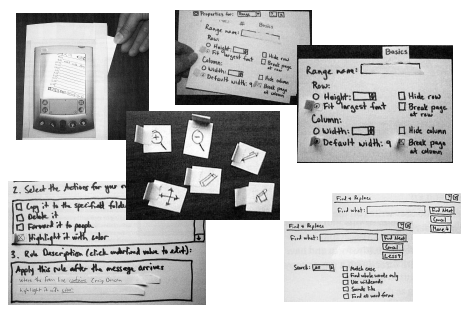 Properties for: Range
Basics
Range name:
Row:
Height:
Hide row
Fit largest font
Break page
at row
Column:
Width:
Hide column
Default width: 9
Break page
at column
Basics
Range name:
Row:
Height:
Hide row
Fit largest font
Break page
at row
Column:
Width:
Hide column
Default width: 9
Break page
at column
2. Select the Actions for your
Copy it to the specified folder
Delete it
Forward it to people
Highlight it with color
3. Rule Description (click underlined value to edit):
Apply this rule after the message arrives
Find & Replace
Find what:
Find Next
Cancel
More
Find & Replace
Find what:
Find Next
Cancel
Less
Search: All
Match case
Find whole words only
Use wildcards
Sounds like
Find all word forms